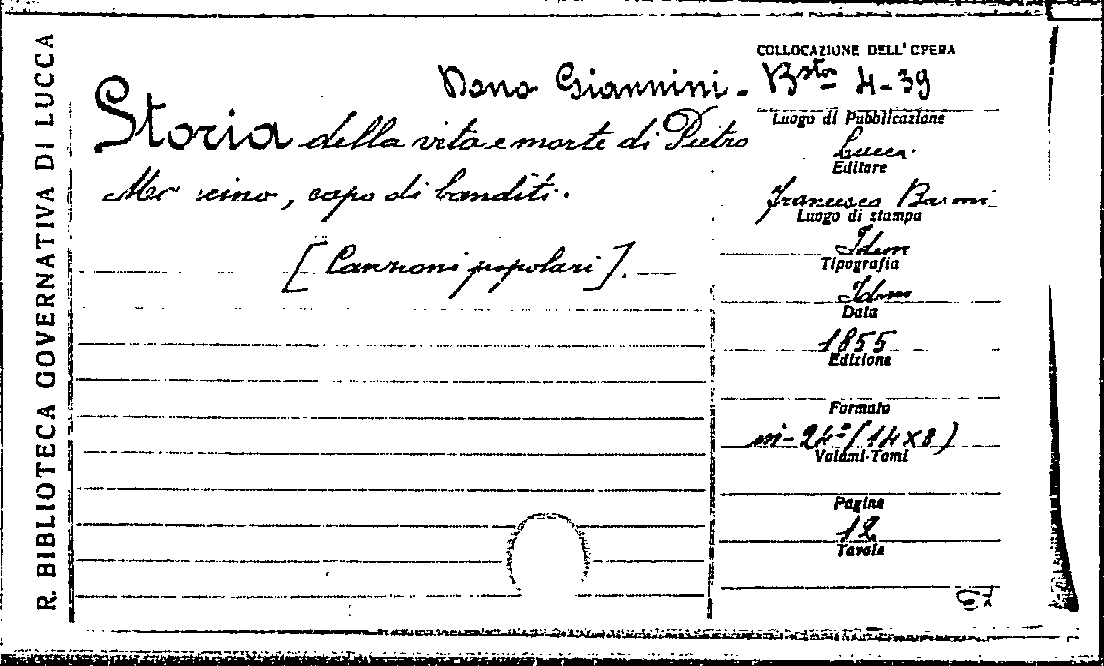 R. BIBLIOTECA GOVERNATIVA DI LUCCA
COLLOCAZIONE DELL'OPERA
Dono Giannini - Bsta 4-39
Storia della vita e morte di Pietro
capo di banditi.
[Canzoni popolari].
Luogo di Pubblicazione
Lucca.
Editore
Francesco Baroni
Luogo di stampa
Idem
Tipografia
Idem
Data
1855
Edizione
Formato
in-24° (14x8)
Volumi-Tomi
Pagine
12
Tavole